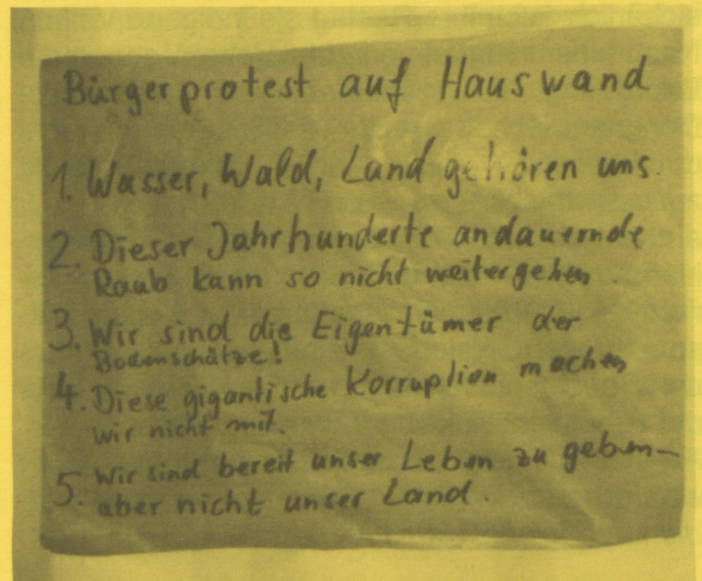 Bürgerprotest auf Hauswand
1. Wasser, Wald, Land gehören uns.
2. Dieser Jahrhunderte andauernde
Raub kann so nicht weitergehen.
3. Wir sind die Eigentümer der
Bodenschätze!
4. Diese gigantische Korruption machen
wir nicht mit.
5. Wir sind bereit unser Leben zu geben-
aber nicht unser Land.